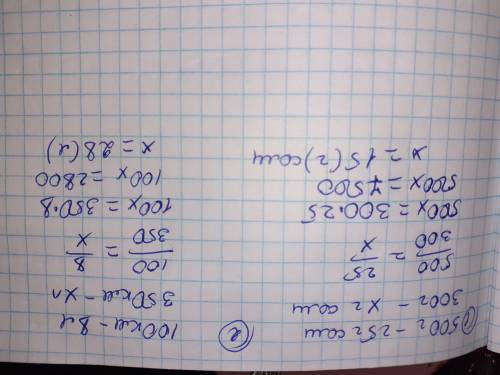 ① 500г - 25г соли
300г - xг соли
500/300 = 25/x
500x = 300·25
500x = 7500
x = 15(г) соли
② 100км - 8л
350км - xл
100/350 = 8/x
100x = 350·8
100x = 2800
x = 28(л)